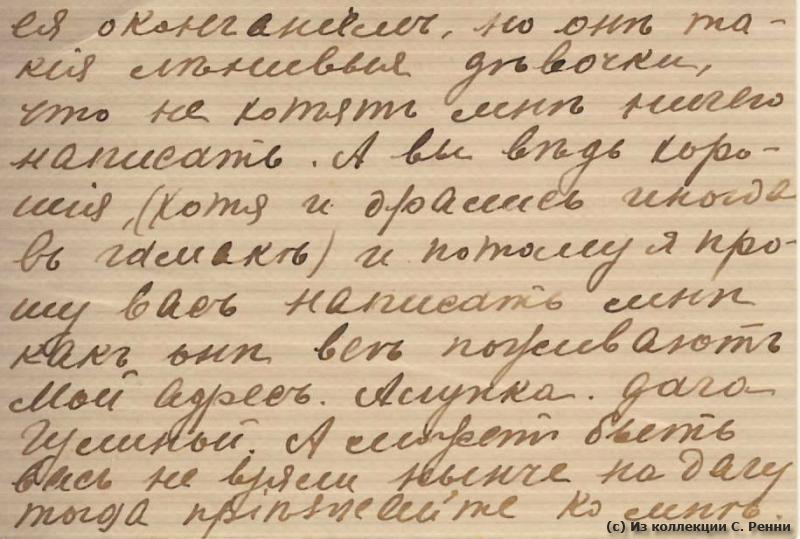 ея окончанiемъ, но онѣ та-
кія лѣнивыя дѣвочки,
что не хотятъ мнѣ ничего
написать. А вы вѣдь хоро-
шія, (хотя и дрались иногда
въ гамакѣ) и потому я про-
шу васъ написать мнѣ
какъ онѣ всѣ поживаютъ
Мой адресъ. Алупка. дача
Гулиной. А можетъ быть
васъ не взяли нынче на дачу
тогда пріѣзжайте ко мнѣ.
(c) Из коллекции С. Ренни